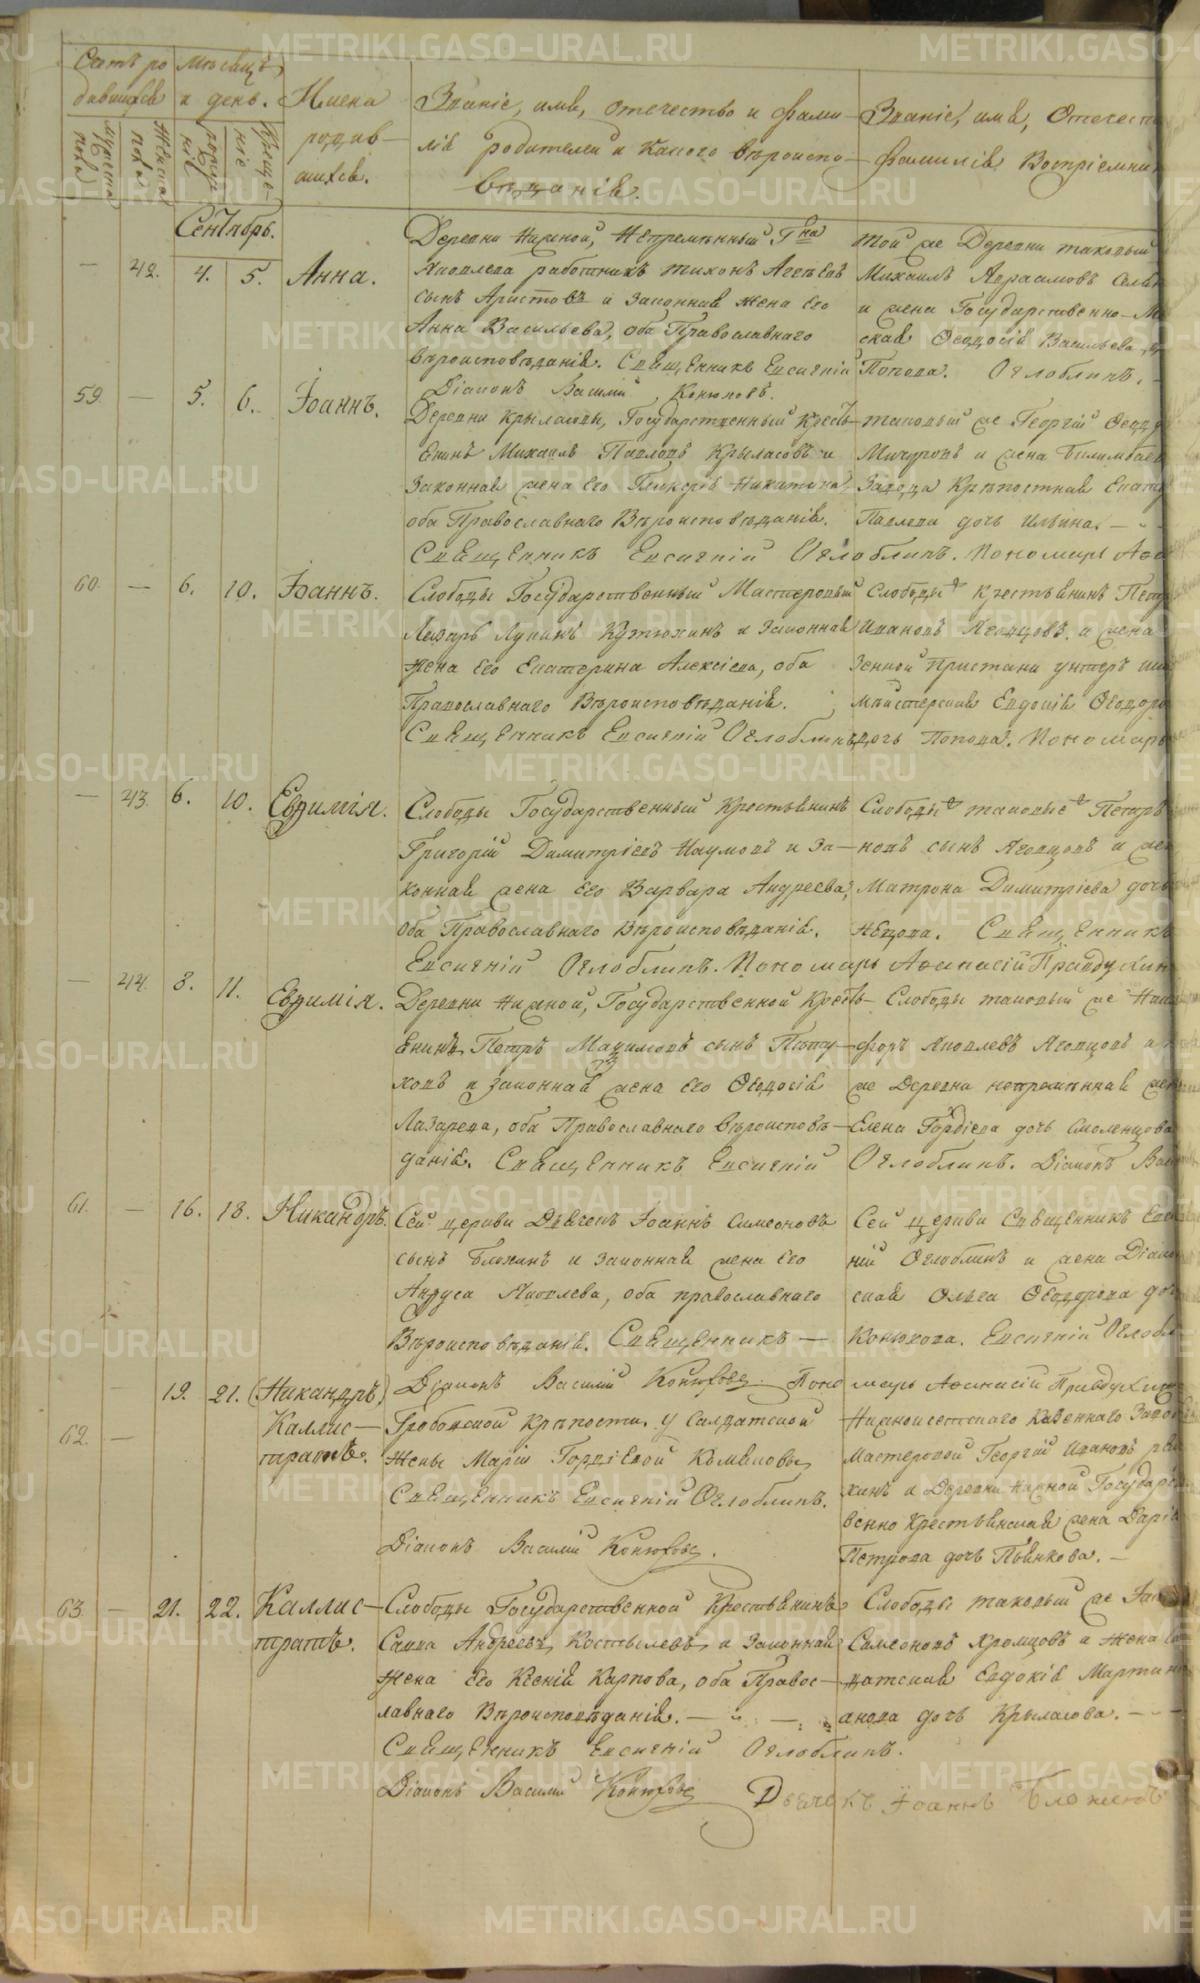 Счетъ ро Мѣсяцъ
дившихся и день. Имена Званіе, имя, отечество и фами-
родив- лія родителей и какого вѣроиспо-
шихся. вѣданія.
Званіе, имя, Отечест
Фамилія Воспріемни
Мужеска пола Женска пола рожденія крещенія
Сентябрь.
— 42. 4. 5. Анна.
Деревни Нижной, Непремѣнный
Яковлева работникъ Тихонъ
сынъ Аристовъ и законная жена его
Анна Васильева, оба Православнаго
вѣроисповѣданія. Священникъ Евсигній
Діаконъ Василій Конюховъ.
той же Деревни таковый
Михаилъ Аврамовъ
и жена Государственно-
ская Ѳеодосія Васильева
Попова. Оглоблинъ.
59. — 5. 6. Іоаннъ.
Деревни Крыласовы, Государственный Кресть-
янинъ Михаилъ Павловъ Крыласовъ и
законная жена его Гликерія Никитина
оба Православнаго Вѣроисповѣданія.
Священникъ Евсигній Оглоблинъ. Пономарь
таковый же Георгій
Мичуровъ и жена Билимбаев
Завода Крѣпостная
Павлова дочь Ильина.
60. — 6. 10. Іоаннъ.
Слободы Государственный Мастеровый
Лазарь Лупинъ Кутюхинъ и законная
жена его Екатерина Алексіева, оба
Православнаго Вѣроисповѣданія.
Священникъ Евсигній Оглоблинъ
Слободы крестьянинъ Петр
Ивановъ и жена
зенной Пристани унтеръ
мейстерская Евдокія Ѳеодоро
дочь Попова. Пономарь
— 43. 6. 10. Евфимія.
Слободы Государственный Крестьянинъ
Григорій Димитріевъ Наумовъ и за-
конная жена его Варвара Андреева,
оба Православнаго Вѣроисповѣданія.
Евсигній Оглоблинъ. Пономарь Аѳанасій Правдухин
Слободы таковые Петръ
новъ сынъ и же
Матрона Димитріева дочь
Священникъ
— 44. 8. 11. Евфимія.
Деревни Нижной, Государственной Кресть-
янинъ Петръ Максимовъ сынъ
ховъ и законная жена его Ѳеодосія
Лазарева, оба Православнаго вѣроисповѣ-
данія. Священникъ Евсигній
Слободы таковый же Ники
форъ Яковлевъ и
же Деревни непремѣнная жен
Елена Гордіева дочь Смоленцова
Оглоблинъ. Діаконъ Вас
61. — 16. 18. Никандръ.
Сей церкви Дьячекъ Іоаннъ Симеоновъ
сынъ Блохинъ и законная жена его
Анфуса Яковлева, оба православнаго
Вѣроисповѣданія. Священникъ —
Діаконъ Василій Конюховъ. Поно
Сей церкви Священникъ Евси
ній Оглоблинъ и жена Діако
ская Ольга Ѳеодорова доч
Конюхова. Евсигній Оглобл
марь Аѳанасій Правдухин
62. — 19. 21. (Никандръ)
Каллис-
тратъ.
Гробовской крѣпости у Салдатской
Жены Маріи Гордіевой
Священникъ Евсигній Оглоблинъ.
Діаконъ Василій Конюховъ.
Нижноисетскаго Казеннаго Завод
Мастеровой Георгій Ивановъ
хинъ и Деревни Нижной Государст
венно Крестьянская жена Дарія
Петрова дочь Пьянкова. —
63. — 21. 22. Каллис-
тратъ.
Слободы Государственной Крестьянинъ
Савва Андреевъ Костылевъ и законная
жена его Ксенія Карпова, оба Правос-
лавнаго Вѣроисповѣданія. —
Священникъ Евсигній Оглоблинъ.
Діаконъ Василій Конюховъ Дьячекъ Іоаннъ Блохинъ
Слободы таковый же
Симеоновъ Хромцовъ и жена
датская Евдокія Мартин
анова дочь Крыласова. —
METRIKI.GASO-URAL.RU